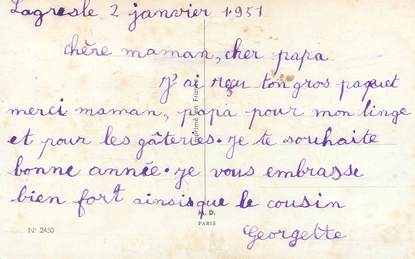 Lagresle 2 janvier 1951
chère maman, cher papa
j'ai reçu ton gros paquet
merci maman, papa pour mon linge
et pour les gâteries. je te souhaite
bonne année. je vous embrasse
bien fort ainsique le cousin
Georgette
Imprimé en France
M. D.
PARIS
N° 2450